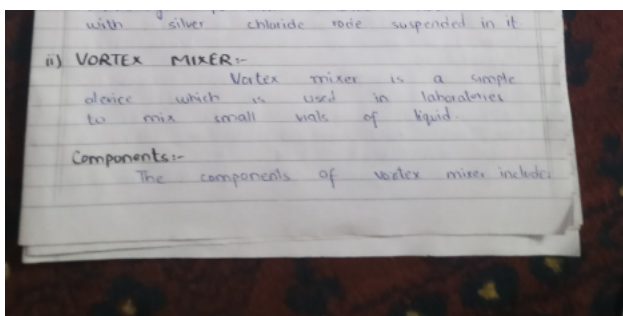 with silver chloride rode suspended in it
ii) VORTEX MIXER:-
Vortex mixer is a simple
device which is used in laboratories
to mix small vials of liquid.
Components:-
The components of vortex mixer includes